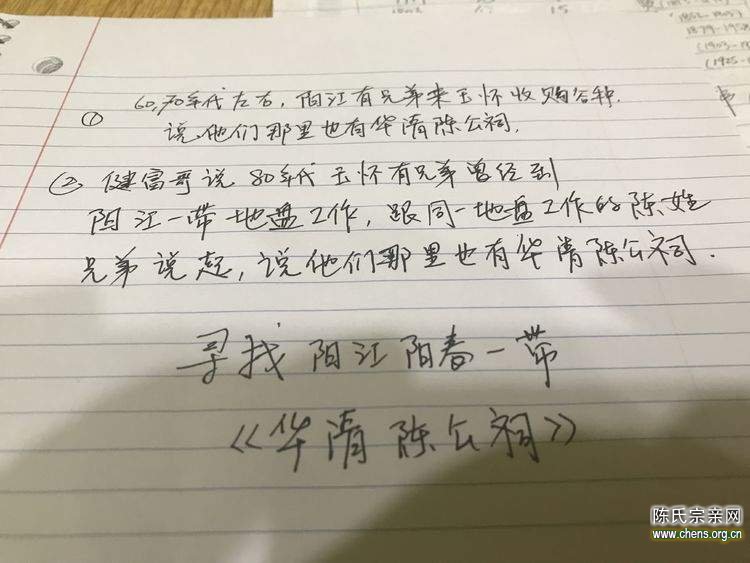 ① 60,70年代左右，阳江有兄弟来玉怀收购谷种.
说他们那里也有华清陈公祠.
② 健富哥说80年代玉怀有兄弟曾经到
阳江一带地盘工作，跟同一地盘工作的陈姓
兄弟说起，说他们那里也有华清陈公祠.
寻找阳江阳春一带
《华清陈公祠》
陈氏宗亲网
www.chens.org.cn